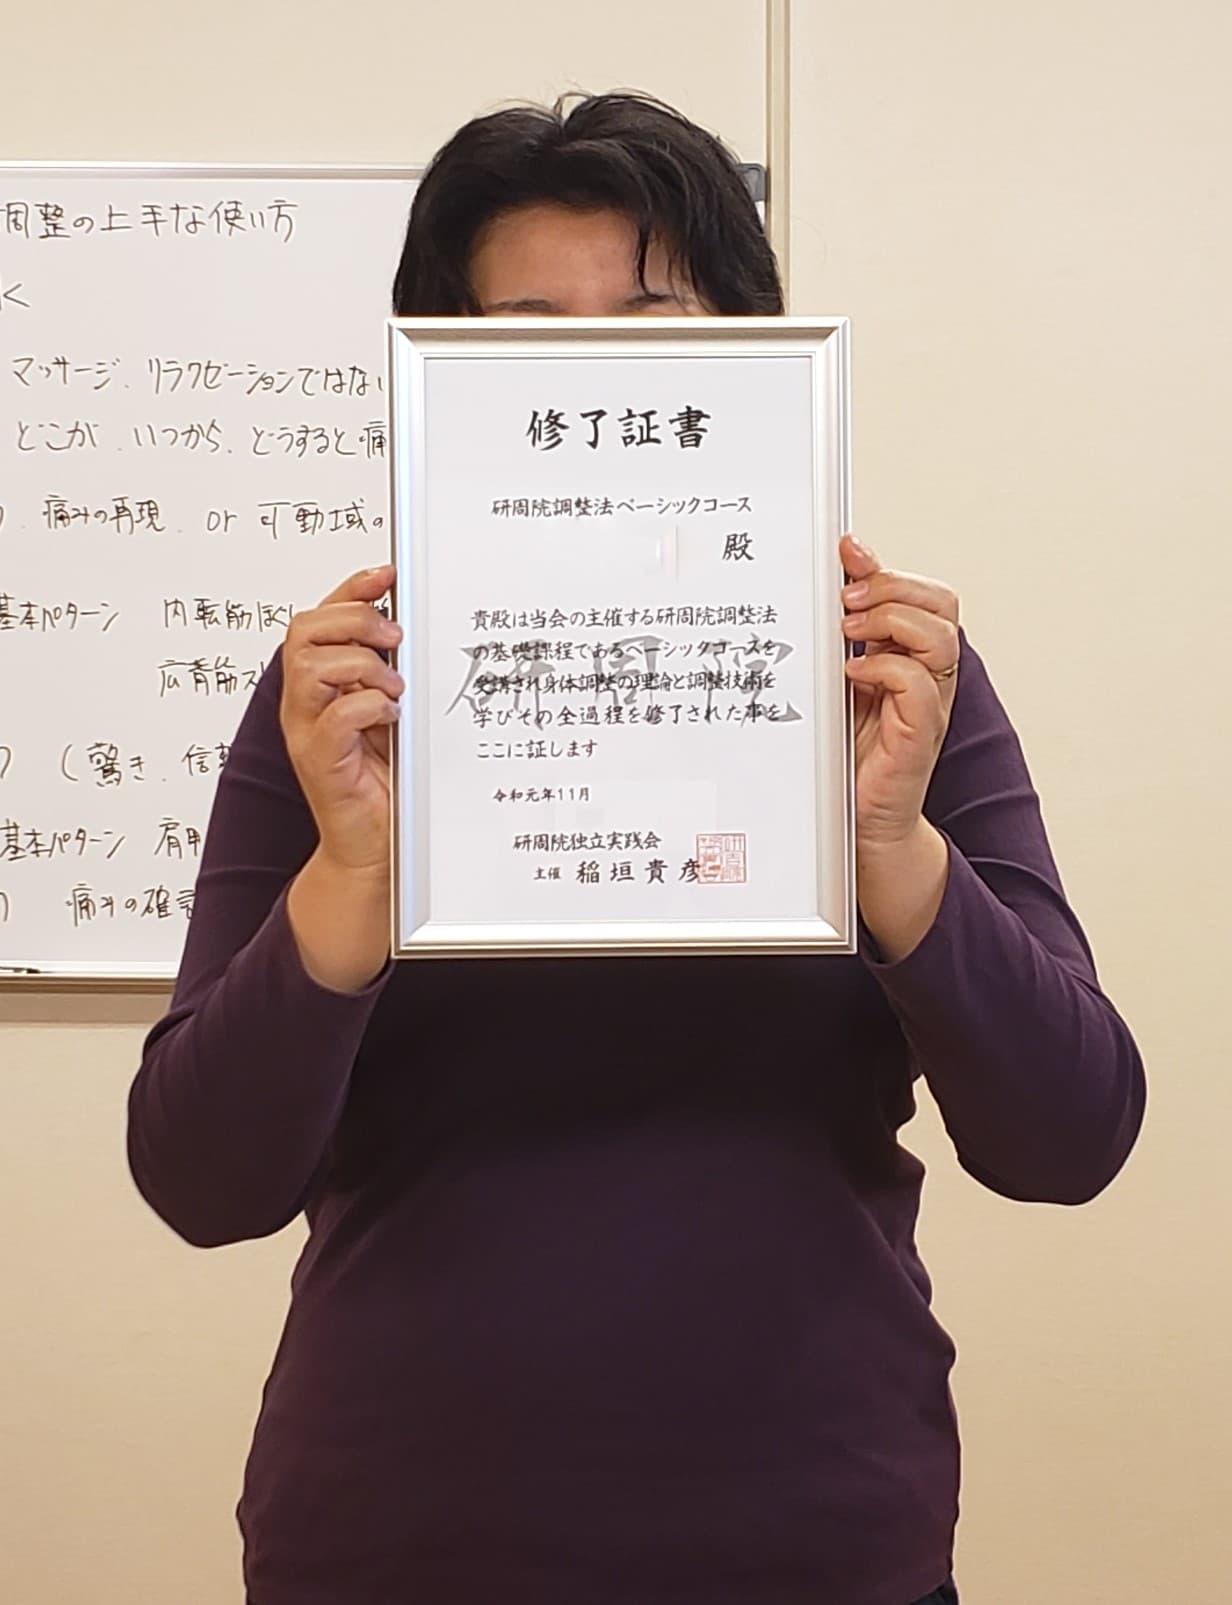 周整の上手な使い方
く
マッサージ、リラクゼーションではない
どこが、いつから、どうすると痛
痛みの再現、or 可動域の
基本パターン 内転筋ほぐし
広背筋ス
(驚き、信
基本パターン 肩甲
痛みの確認
修了証書
研周院調整法ベーシックコース
殿
貴殿は当会の主催する研周院調整法
の基礎課程であるベーシックコースを
受講され身体調整の理論と調整技術を
学びその全過程を修了された事を
ここに証します
研周院
令和元年11月
研周院独立実践会
主催 稲垣貴彦